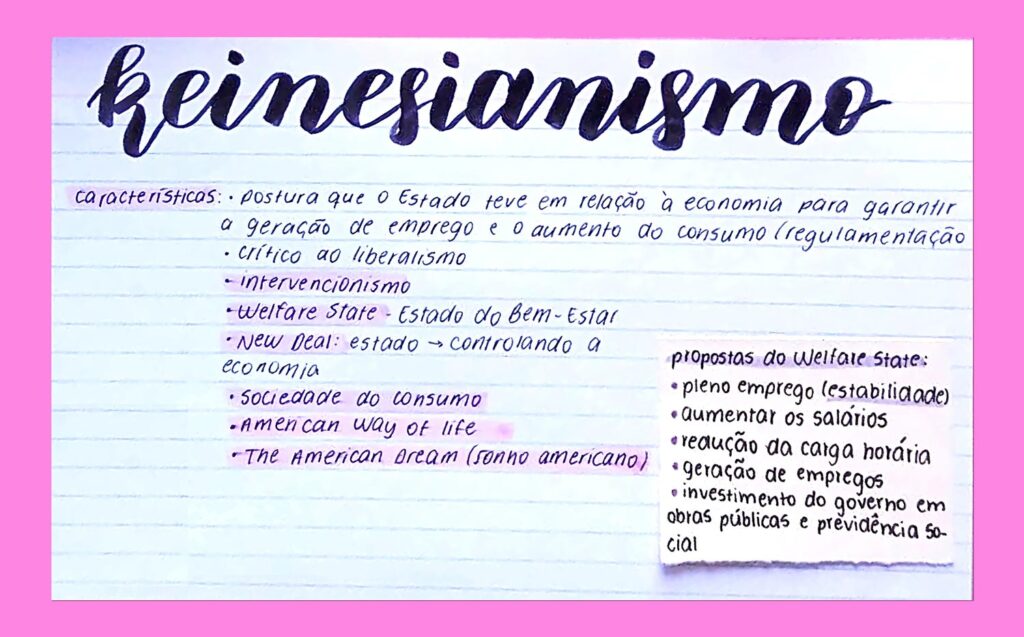 keinesianismo
características: • postura que o Estado teve em relação à economia para garantir
a geração de emprego e o aumento do consumo (regulamentação
• crítico ao liberalismo
• intervencionismo
• Welfare State - Estado do Bem-Estar
• New Deal: estado → controlando a
economia
• Sociedade do consumo
• American Way of life
• The American Dream (sonho americano)
propostas do Welfare State:
• pleno emprego (estabilidade)
• aumentar os salários
• redução da carga horária
• geração de empregos
• investimento do governo em
obras públicas e previdência so-
cial